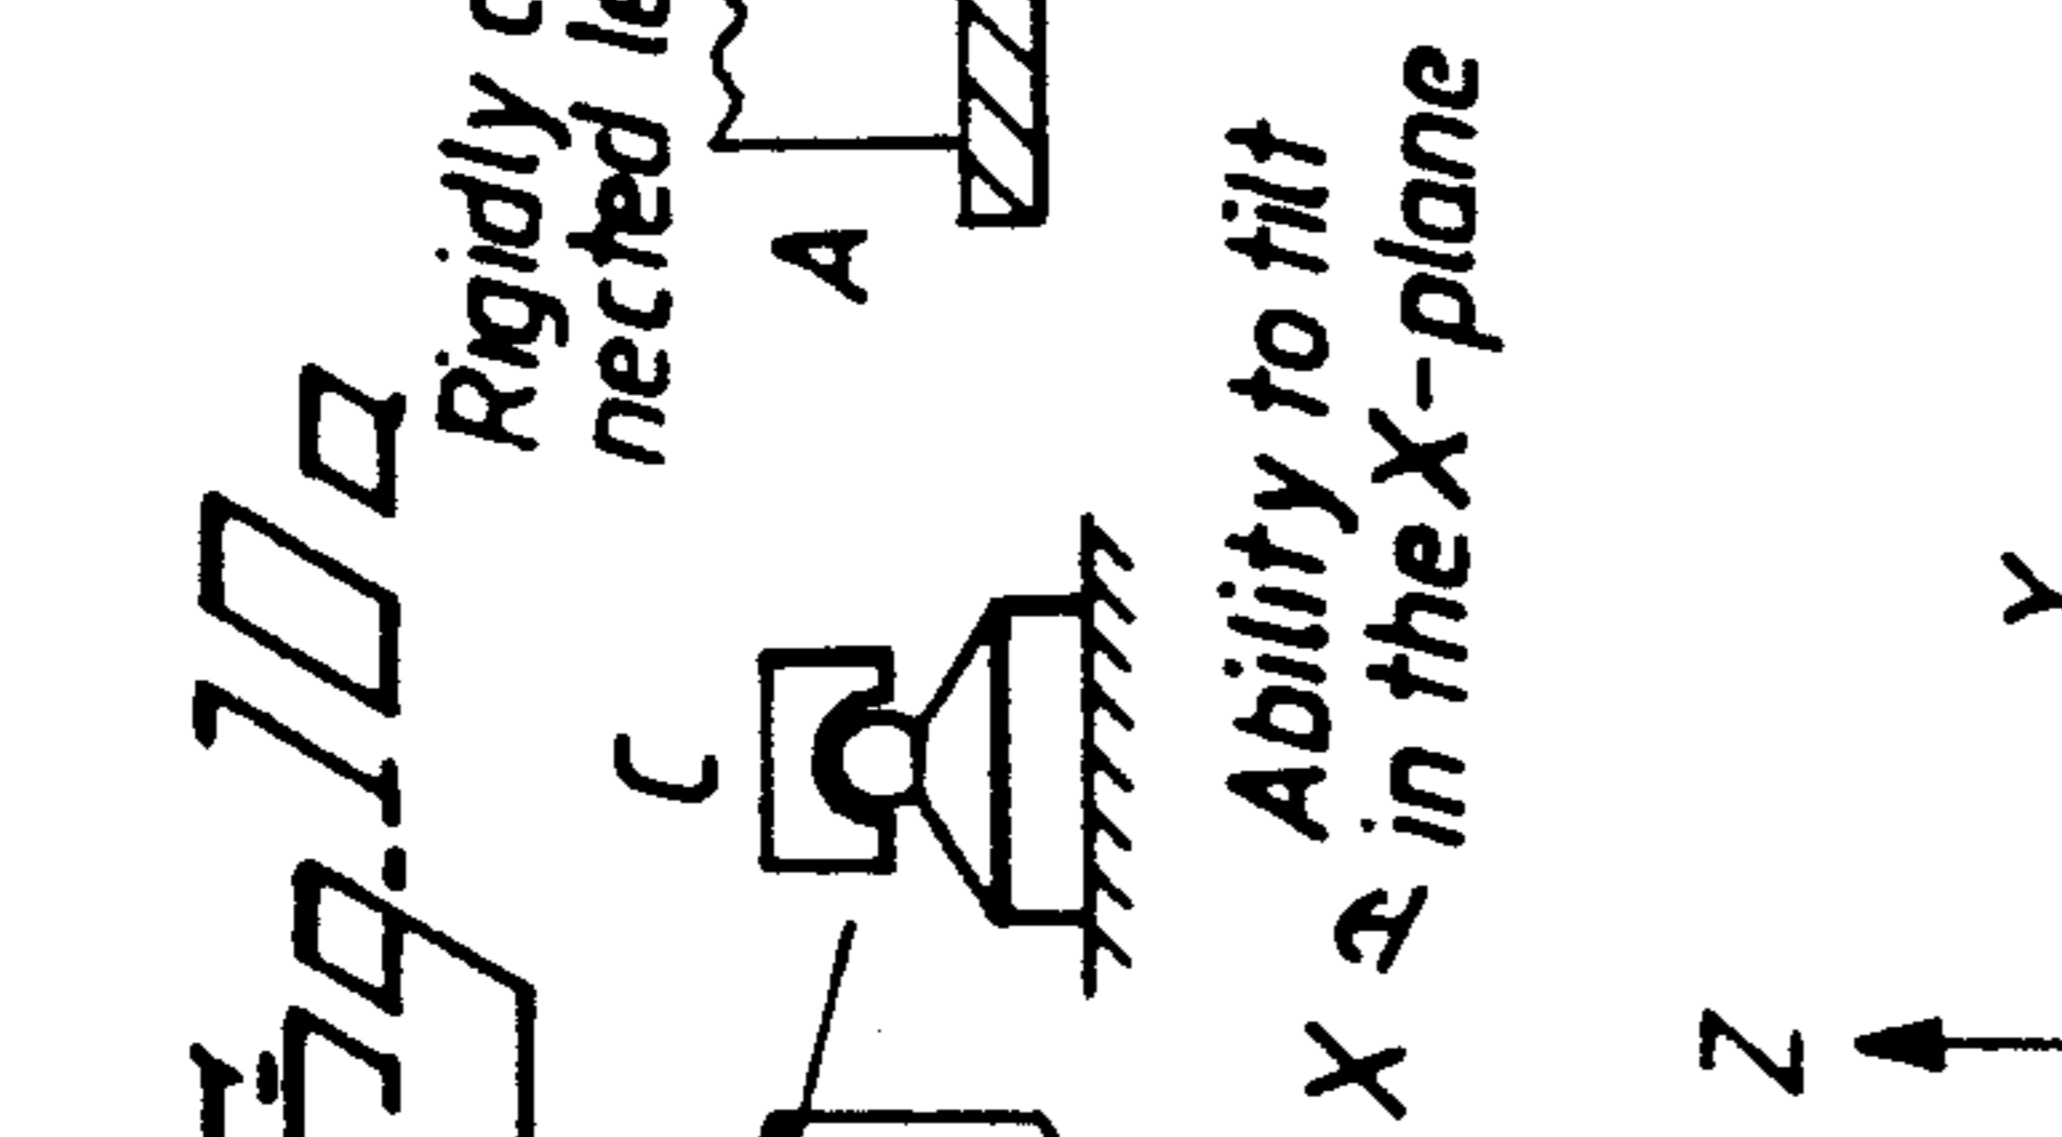 Fig.10a
Rigidly c
nected le
C
A
Ability to tilt
X in the X-plane
Z
Y